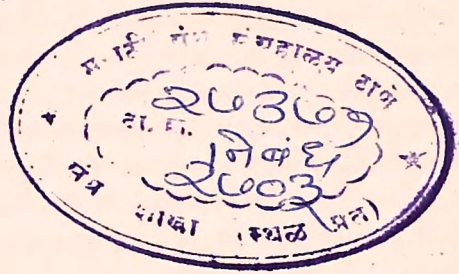 मराठी ग्रंथ संग्रहालय ठाणे
२७३७१
दा. क्र.
निबंध
२७०३
ग्रंथ शाखा (स्थळ प्रत)